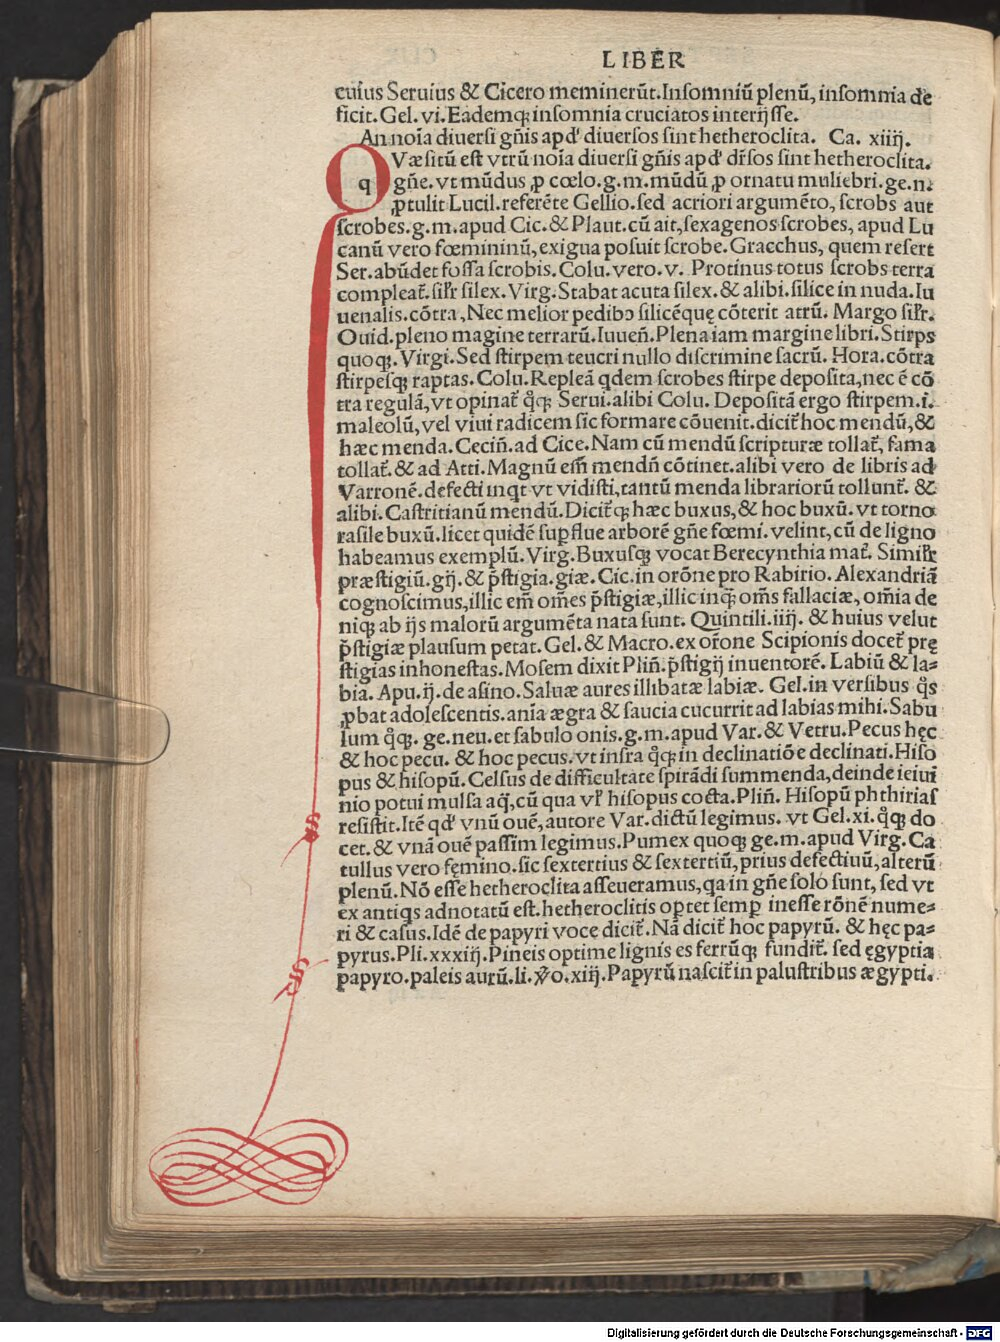 LIBER
cuius Seruius & Cicero meminerūt.Insomniū plenū, insomnia de
ficit.Gel.vi.Eademqꝫ insomnia cruciatos interijsse.
An noīa diuersi gñis apđ diuersos sint hetheroclita. Ca. xiiij.
QVæsitū est vtrū noīa diuersi gñis apđ dr̄sos sint hetheroclita.
q gñe.vt mūdus ꝓ cœlo.g.m.mūdū ꝓ ornatu muliebri.ge.n.
ꝓtulit Lucil.referēte Gellio.sed acriori argumēto, scrobs aut
scrobes.g.m.apud Cic.& Plaut.cū ait,sexagenos scrobes, apud Lu
canū vero fœmininū,exigua posuit scrobe.Gracchus, quem refert
Ser.abūdet fossa scrobis.Colu.vero.v. Protinus totus scrobs terra
compleat᷑.sifr silex.Virg.Stabat acuta silex.& alibi.silice in nuda.Iu
uenalis.cōtra,Nec melior pedibꝰ silicēquę cōterit atrū. Margo sifr.
Ouid.pleno magine terrarū.Iuueñ.Plena iam margine libri.Stirps
quoqꝫ.Virgi.Sed stirpem teucri nullo discrimine sacrū. Hora.cōtra
stirpesqꝫ raptas.Colu.Repleā qdem scrobes stirpe deposita,nec ē cō
tra regulā,vt opinat᷑ qͦqꝫ Serui.alibi Colu. Depositā ergo stirpem.i.
maleolū,vel viui radicem sic formare cōuenit.dicit᷑ hoc mendū,&
hæc menda.Ceciñ.ad Cice.Nam cū mendū scripturæ tollat᷑, fama
tollat᷑.& ad Atti.Magnū em̄ mendñ cōtinet.alibi vero de libris ad
Varronē.defecti inqt vt vidisti,tantū menda librariorū tollunt᷑. &
alibi.Castritianū mendū.Dicit᷑qꝫ hæc buxus,& hoc buxū.vt torno
rasile buxū.licet quidē suꝑflue arborē gñe fœmi.velint,cū de ligno
habeamus exemplū.Virg.Buxusqꝫ vocat Berecynthia mat᷑. Simifr
præstigiū.gij.& p̄stigia.giæ.Cic.in orōne pro Rabirio. Alexandriā
cognoscimus,illic em̄ om̄es p̄stigiæ,illic inqꝫ om̄s fallaciæ, om̄ia de
niqꝫ ab ijs malorū argumēta nata sunt. Quintili.iiij. & huius velut
p̄stigiæ plausum petat.Gel.& Macro.ex or̄one Scipionis docet᷑ prę
stigias inhonestas.Mosem dixit Pliñ.p̄stigij inuentorē. Labiū & la⸗
bia. Apu.ij.de asino.Saluæ aures illibatæ labiæ. Gel.in versibus qͦs
ꝓbat adolescentis.anīa ægra & saucia cucurrit ad labias mihi.Sabu
lum qͦqꝫ.ge.neu.et sabulo onis.g.m.apud Var.& Vetru.Pecus hęc
& hoc pecu. & hoc pecus.vt infra qͦqꝫ in declinatiōe declinati.Hiso
pus & hisopū. Celsus de difficultate spirādi summenda,deinde ieiui
nio potui mulsa aq̄,cū qua vl̄ hisopus cocta.Pliñ. Hisopū phthiriasſ
resistit.Itē qđ vnū ouē,autore Var.dictū legimus. vt Gel.xi.qͦqꝫ do
cet.& vnā ouē passim legimus.Pumex quoqꝫ ge.m.apud Virg.Ca
tullus vero fęmino.sic sextertius & sextertiū,prius defectiuū,alterū
plenū.Nō esse hetheroclita asseueramus,qa in gñe solo sunt, sed vt
ex antiqs adnotatū est.hetheroclitis oꝑtet semꝑ inesse rōnē nume⸗
ri & casus.Idē de papyri voce dicit᷑. Nā dicit᷑ hoc papyrū. & hęc pa⸗
pyrus.Pli.xxxiij.Pineis optime lignis es ferrūqꝫ fundit᷑. sed ęgyptia
papyro.paleis aurū.li.ꝟo.xiij.Papyrū nascit᷑ in palustribus ægypti.
Digitalisierung gefördert durch die Deutsche Forschungsgemeinschaft - DFG